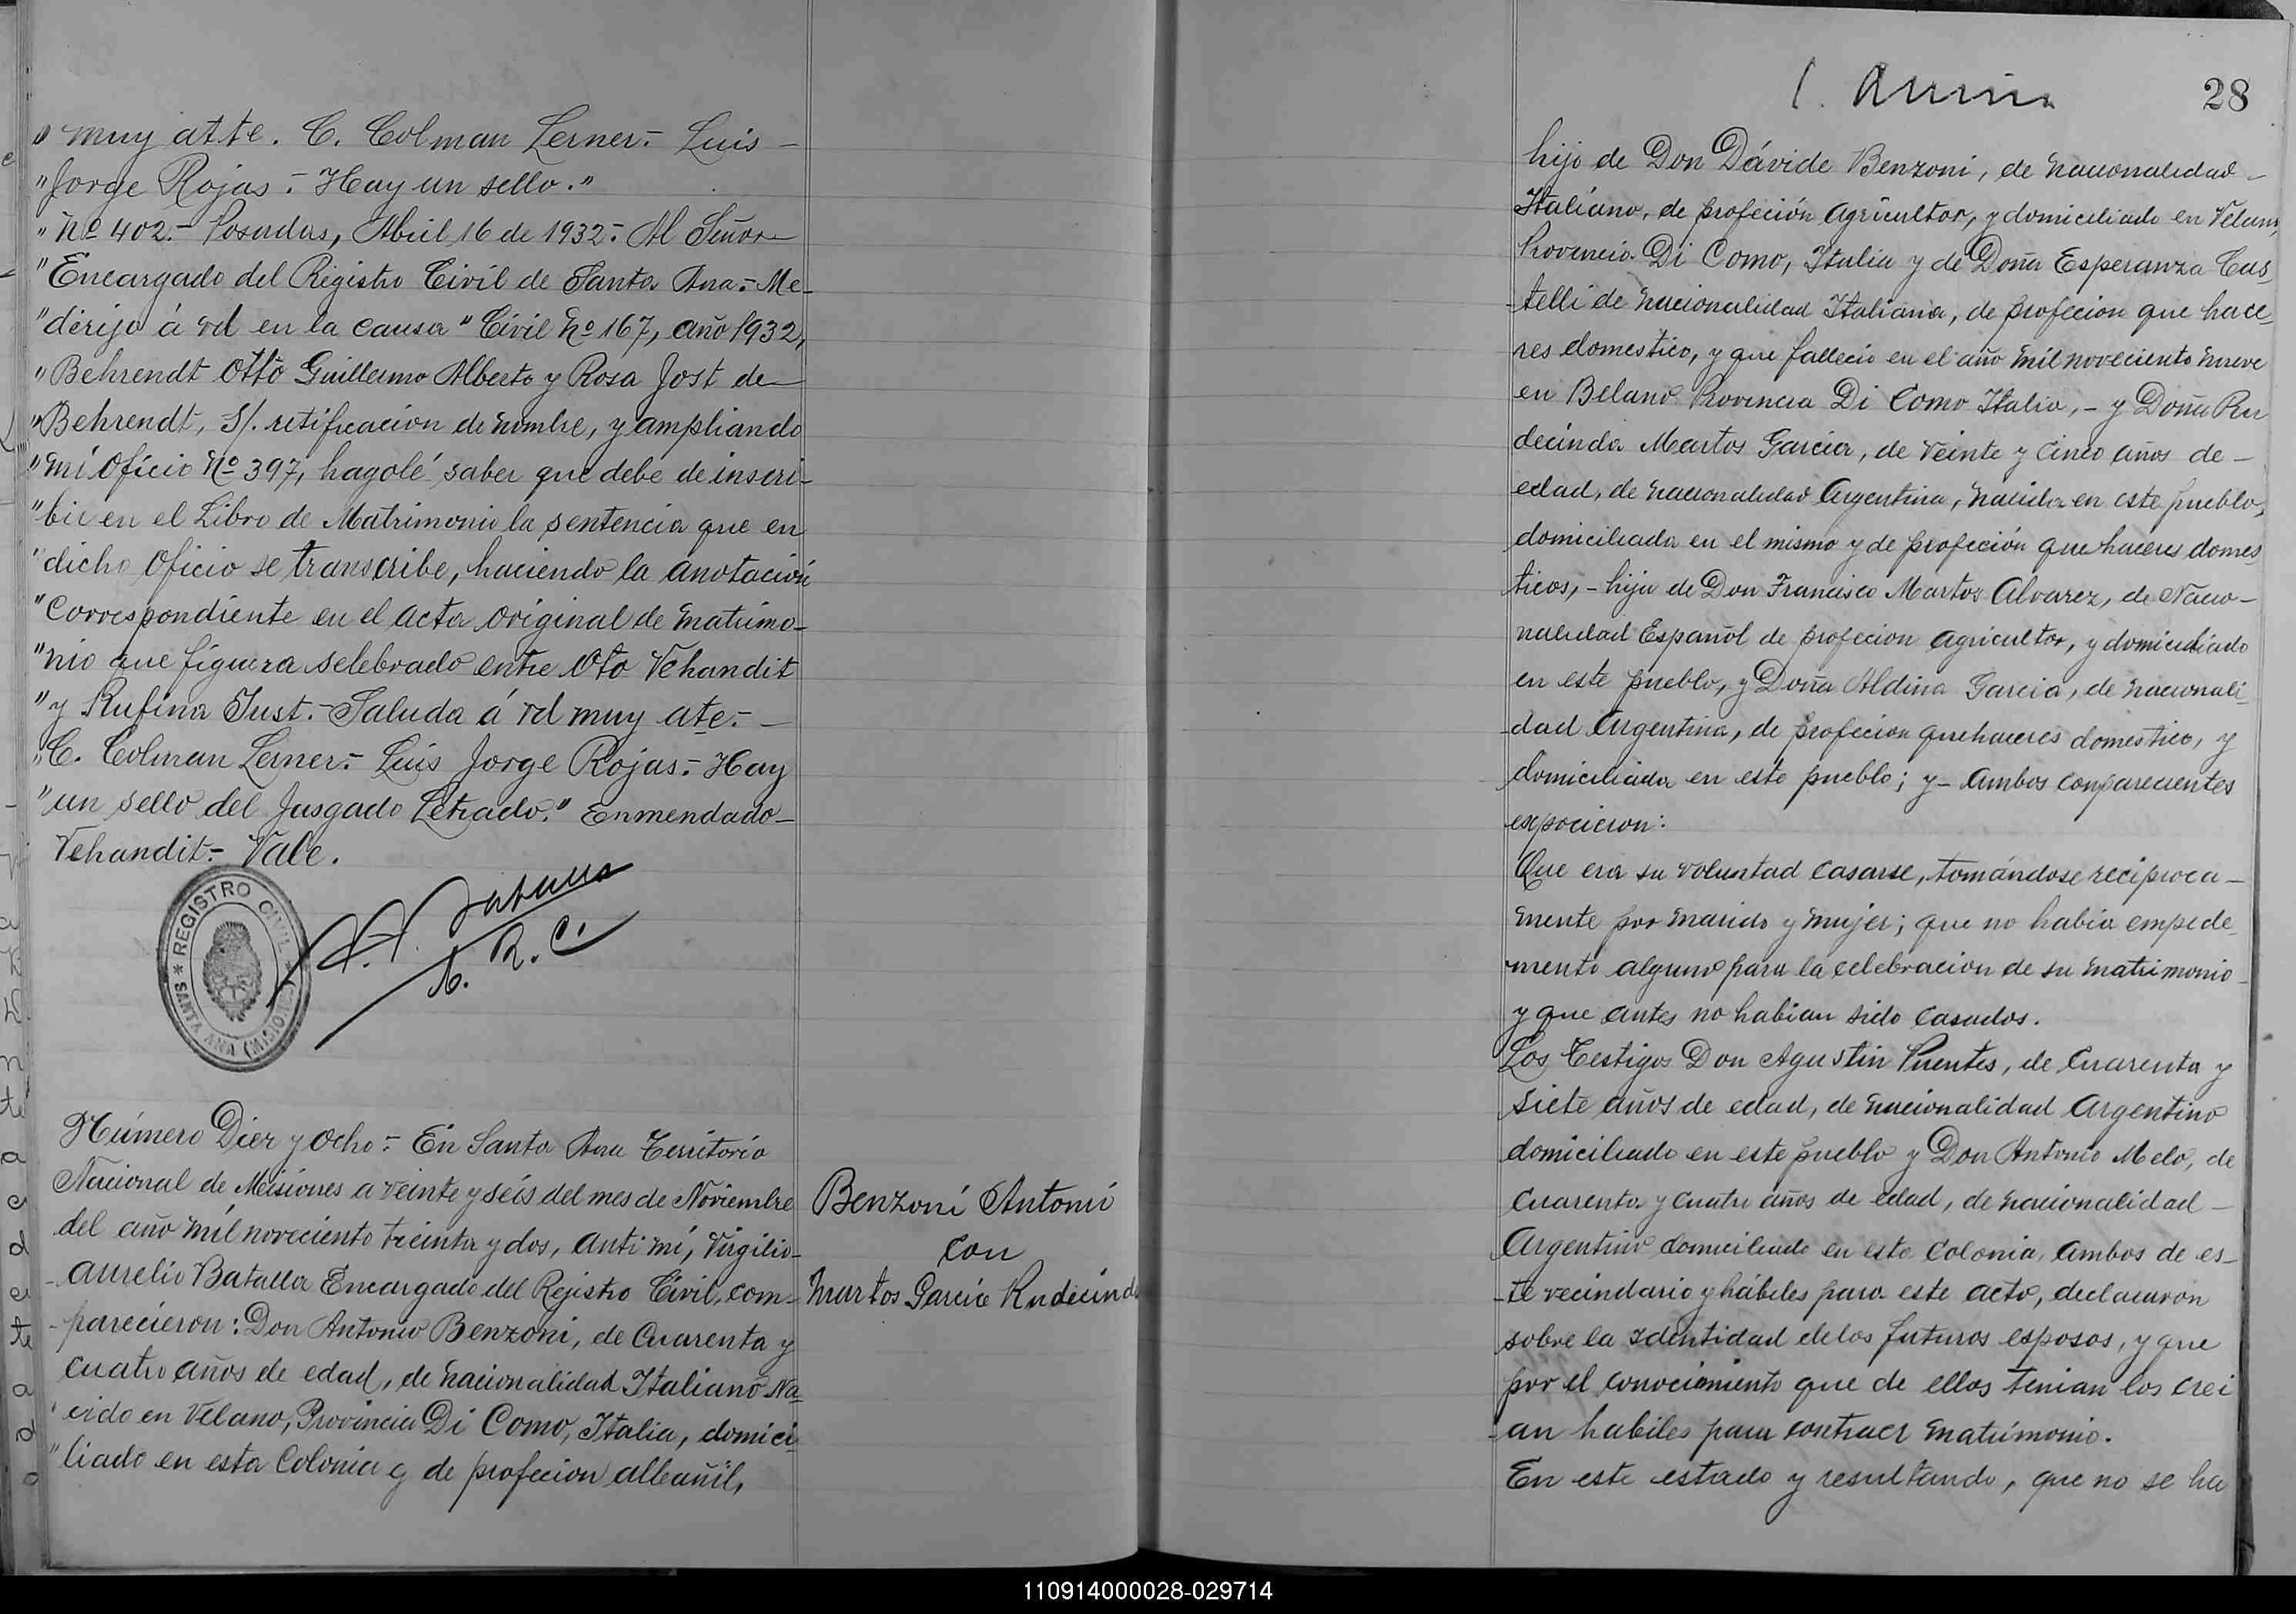 " muy atte. C. Colman Lerner.- Luis -
"Jorge Rojas.- Hay un sello."
"Nº 402.- Posadas, Abril 16 de 1932.- Al Señor
"Encargado del Registro Civil de Santa Ana.- Me-
"dirijo á vd en la causa "Civil Nº 167, año 1932,
"Behrendt Otto Guillermo Alberto y Rosa Jost de
"Behrendt, S/. retificación de nombre, y ampliando
"mi Oficio Nº 397, hagolé saber que debe de inscri-
"bir en el Libro de Matrimonio la sentencia que en
"dicho Oficio se transcribe, haciendo la anotación
"Correspondiente en el acta original de matrimo-
"nio que figura selebrado entre Oto Vehandit
"y Rufina Just.- Saluda á vd muy ate.-
"C. Colman Lerner.- Luis Jorge Rojas.- Hay
"un sello del Jusgado Letrado." Enmendado-
Vehandit.- Vale.
REGISTRO CIVIL
* SANTA ANA (MISIONES) *
R. C.
Número Diez y Ocho.- En Santa Ana Territorio
Nacional de Misiones a veinte y seis del mes de Noviembre
del año mil noveciento treinta y dos, anti mí, Virgilio-
Aurelio Batalla Encargado del Rejistro Civil, com-
-parecieron: Don Antonio Benzoni, de Cuarenta y
cuatro años de edad, de nacionalidad Italiano Na-
cido en Velano, Provincia Di Como, Italia, domici-
"liado en esta Colonia y de profecion albañil,
Benzoni Antonio
con
Martos García Rudecinda
28
hijo de Don Dávide Benzoni, de nacionalidad -
Italiano, de profeción agricultor, y domiciliado en Velano,
Provincia Di Como, Italia y de Doña Esperanza Cas-
-telli de nacionalidad Italiana, de profecion que hace-
res domestico, y que fallecio en el año mil noveciento nueve
en Belano Provincia Di Como Italia, - y Doña Ru
decinda Martos García, de veinte y cinco años de -
edad, de nacionalidad Argentina, nacida en este pueblo,
domiciliada en el mismo y de profeción que haceres domes
ticos, - hija de Don Francisco Martos Alvarez, de Nacio-
nalidad Español de profecion agricultor, y domiciliado
en este pueblo, y Doña Aldina Garcia, de nacionali-
-dad Argentina, de profecion quehaceres domestico, y
domiciliada en este pueblo; y - ambos comparecientes
exposicion:
Que era su voluntad casarse, tomándose reciproca -
mente por marido y mujer; que no habia empede-
mento alguno para la celebracion de su matrimonio -
y que antes no habian sido casados.
Los Testigos Don Agustin Puentes, de Cuarenta y
siete años de edad, de nacionalidad Argentino
domiciliado en este pueblo y Don Antonio Melo, de
cuarenta y cuatro años de edad, de nacionalidad -
Argentino domiciliado en esta Colonia, ambos de es-
-te vecindario y hábiles para este acto, declararon
sobre la identidad de los futuros esposos, y que
por el conocimiento que de ellos tenian los crei
-an habiles para contraer matrimonio.
En este estado y resultando, que no se ha
110914000028-029714